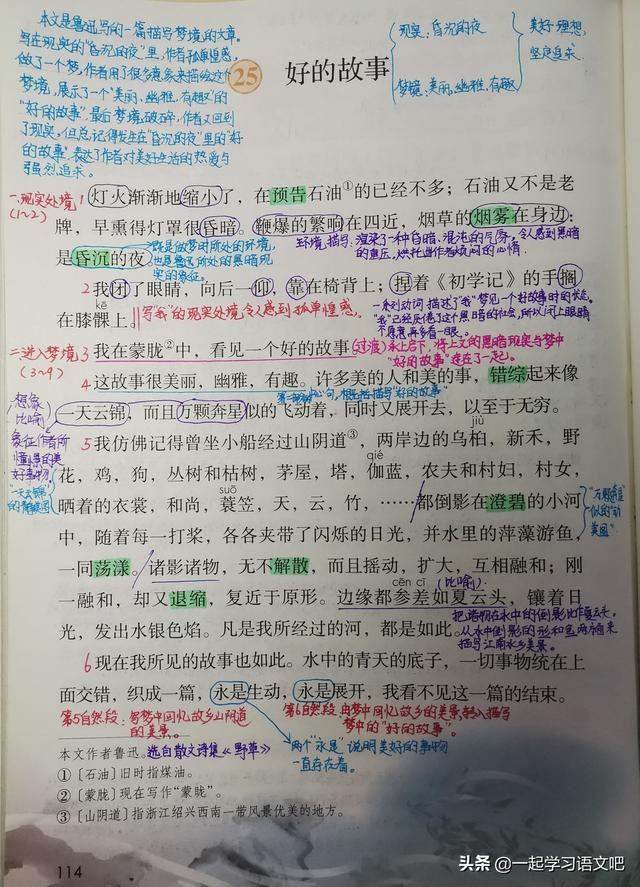 本文是鲁迅写的一篇描写梦境的文章。
写在现实的“昏沉的夜”里,作者孤单惶惑,
做了一个梦,作者用了很多意象来描绘这个
梦境,展示了一个“美丽,幽雅,有趣”的
“好的故事”。最后梦境破碎,作者又回到
了现实,但总记得发生在“昏沉的夜”里的“好
的故事”。表达了作者对美好生活的热爱与
强烈追求。
现实:昏沉的夜
梦境:美丽,幽雅,有趣
美好理想,
坚定追求
25 好的故事
一.现实处境
(1~2)
1 灯火渐渐地缩小了,在预告石油①的已经不多;石油又不是老
牌,早熏得灯罩很昏暗。鞭爆的繁响在四近,烟草的烟雾在身边:
环境描写,渲染了一种昏暗、混沌的气氛,令人感到黑暗
的重压,烘托出作者烦闷的心情
是昏沉的夜
既是做梦时所处的环境,
也是鲁迅所处的黑暗现
实的象征。
2 我闭了眼睛,向后一仰,靠在椅背上;捏着《初学记》的手搁
kē
在膝髁上。
写“我”的现实处境,令人感到孤单惶惑。
一系列动词描述了“我”梦见一个好故事时的状态。
“我”已经厌倦了这个黑暗的社会,所以闭上眼睛
不愿意再多看一眼。
二.进入梦境
(3~9)
3 我在蒙胧②中,看见一个好的故事
(过渡)承上启下,将上文的黑暗现实与梦中
“好的故事”连在了一起。
4 这故事很美丽,幽雅,有趣。许多美的人和美的事,错综起来像
概括描写“好的故事”
想像
比喻
一天云锦,而且万颗奔星似的飞动着,同时又展开去,以至于无穷。
象征作者所
憧憬的美
好事物
“一天云锦”
的静美图
jiù
5 我仿佛记得曾坐小船经过山阴道③,两岸边的乌桕,新禾,野
qié
花,鸡,狗,丛树和枯树,茅屋,塔,伽蓝,农夫和村妇,村女,
suō
晒着的衣裳,和尚,蓑笠,天,云,竹,……都倒影在澄碧的小河
“万颗奔星”
似的“动
美图”
中,随着每一打桨,各各夹带了闪烁的日光,并水里的萍藻游鱼,
一同荡漾。诸影诸物,无不解散,而且摇动,扩大,互相融和;刚
cēn cī (比喻)
一融和,却又退缩,复近于原形。边缘都参差如夏云头,镶着日
把诸物在水中的倒影比作夏云头。
光,发出水银色焰。凡是我所经过的河,都是如此。
从水中倒影的形和色两方面来
描写江南水乡美景。
6 现在我所见的故事也如此。水中的青天的底子,一切事物统在上
面交错,织成一篇,永是生动,永是展开,我看不见这一篇的结束。
第5自然段:写梦中回忆故乡山阴道
的美景。
第6自然段:由梦中回忆故乡的美景,转入描写
梦中的“好的故事”。
两个“永是”说明美好的事物
一直存在着。
本文作者鲁迅。选自散文诗集《野草》
①〔石油〕旧时指煤油。
②〔蒙胧〕现在写作“蒙眬”。
③〔山阴道〕指浙江绍兴西南一带风景优美的地方。
114
头条 @一起学习语文吧